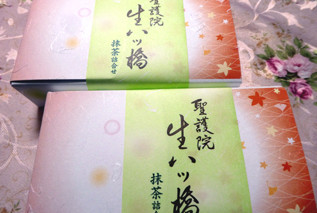 聖護院
生八ツ橋
抹茶詰合せ
聖護院
生八ツ橋
抹茶詰合